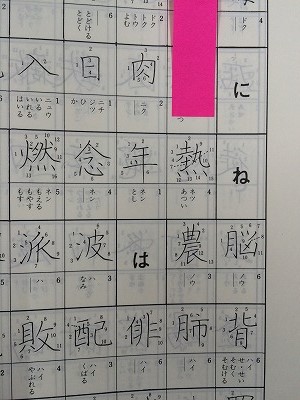 ドク
トク
トウ
よむ
とどける
とどく
6
に
肉
ニク
2
日
ニチ
ジツ
ひ
か
1
入
ニュウ
いる
いれる
はいる
1
ね
熱
ネツ
あつい
4
年
ネン
とし
1
念
ネン
4
燃
ネン
もえる
もやす
もす
5
脳
ノウ
6
農
ノウ
3
は
波
ハ
なみ
3
派
ハ
6
背
ハイ
せ
せい
そむく
そむける
6
肺
ハイ
6
俳
ハイ
6
配
ハイ
くばる
3
敗
ハイ
やぶれる
4